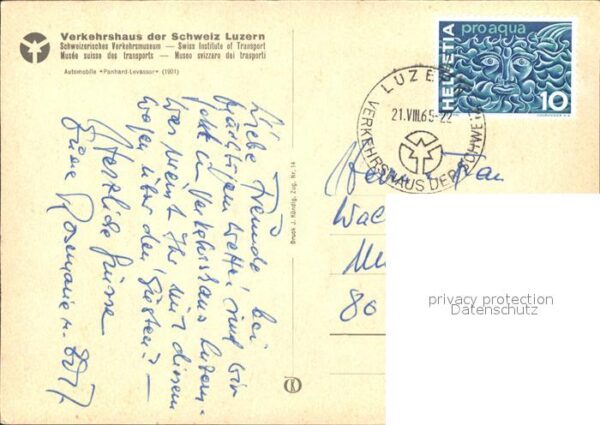 Verkehrshaus der Schweiz Luzern
Schweizerisches Verkehrsmuseum — Swiss Institute of Transport
Musée suisse des transports — Museo svizzero dei trasporti
Automobile «Panhard-Levassor» (1901)
Liebe Freunde bei
prächtigem Wetter sind wir
jetzt im Verkehrshaus Luzern.
Was meint Ihr mit diesem
Wagen über den
Herzliche Grüsse
Eure Rosemarie
Druck J. Kündig, Zug, Nr. 14
HELVETIA
pro aqua
10
LUZERN
21.VIII.65-22
VERKEHRSHAUS DER SCHWEIZ
80
privacy protection
Datenschutz